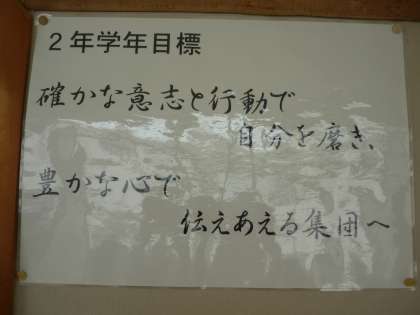 2年学年目標
確かな意志と行動で
自分を磨き、
豊かな心で
伝えあえる集団へ